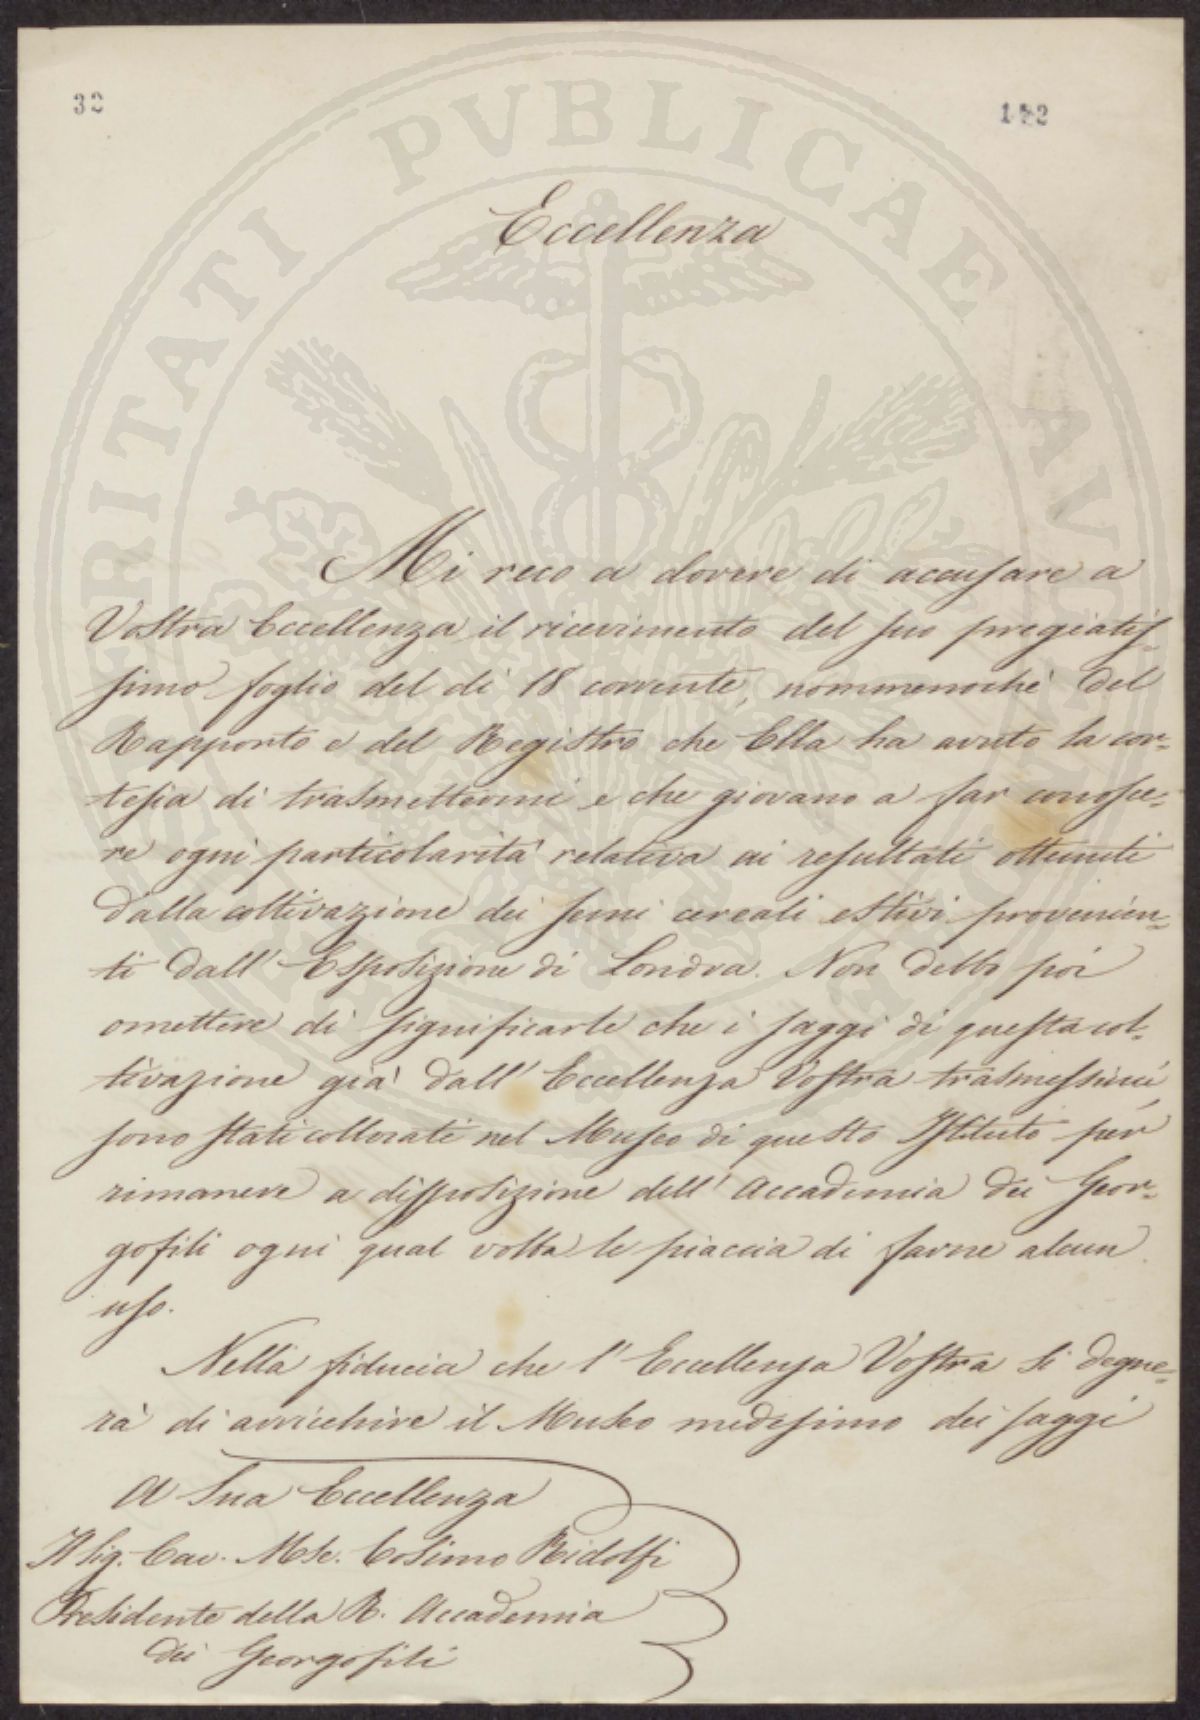 32
142
PROSPERITATI PUBLICAE AUGENDAE
Eccellenza
Mi reco a dovere di accusare a
Vostra Eccellenza il ricevimento del suo pregiatis-
simo foglio del dì 18 corrente, nommenochè del
Rapporto e del Registro che Ella ha avuto la cor-
tesia di trasmettermi e che giovano a far conosce-
re ogni particolarità relativa ai resultati ottenuti
dalla coltivazione dei semi cereali estivi provenien-
ti dall'Esposizione di Londra. Non debbo poi
omettere di significarle che i saggi di questa col-
tivazione già dall'Eccellenza Vostra trasmessimi,
sono stati collocati nel Museo di questo Istituto per
rimanere a disposizione dell'Accademia dei Geor-
gofili ogni qual volta le piaccia di farne alcun
uso.
Nella fiducia che l'Eccellenza Vostra si degne-
rà di arricchire il Museo medesimo dei saggi
A Sua Eccellenza
Il Sig. Cav. Mse. Cosimo Ridolfi
Presidente della R. Accademia
dei Georgofili